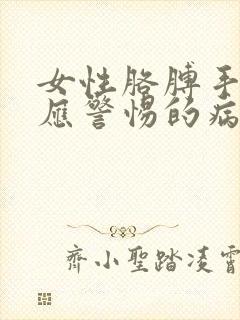 女性胳膊手
应警惕的病
齐小聖踏凌霄